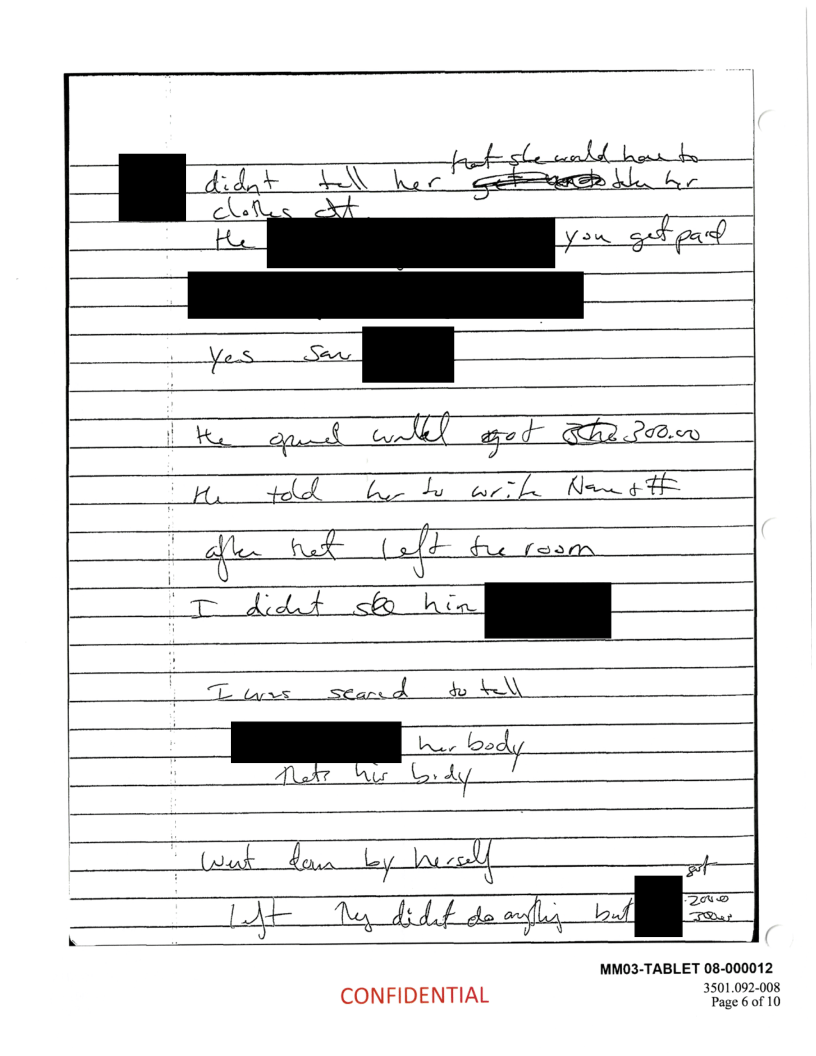 that she would have to
didnt tell her take her
clothes off
He you get paid
yes saw
He got 300.00
He told her to write Name + #
after that left the room
I didnt see him
I was scared to tell
her body
thats his body
Went down by herself
got
left They didnt do anything but 200.00
300.00
MM03-TABLET 08-000012
3501.092-008
CONFIDENTIAL
Page 6 of 10